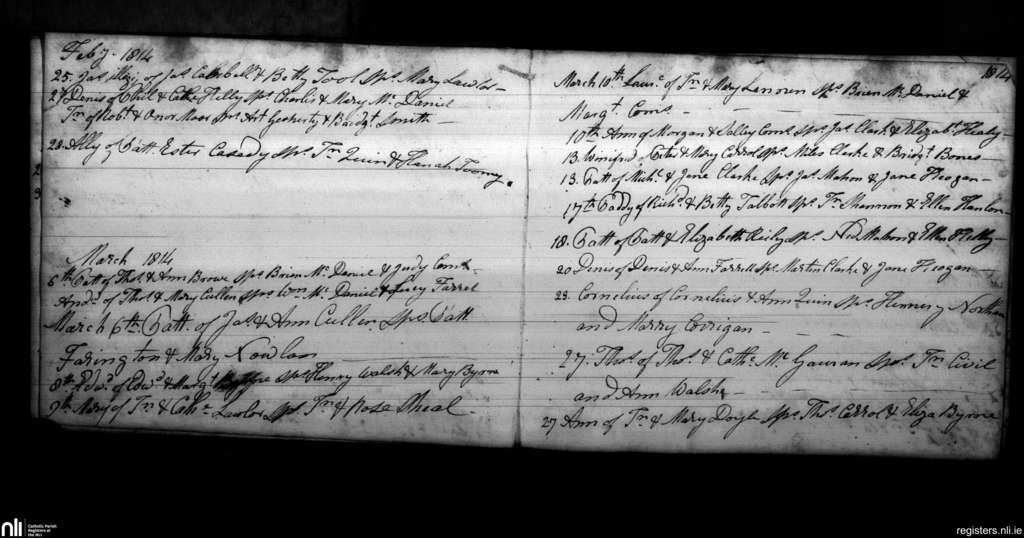 Feby. 1814
25. Jas illegi. of Jas Cambell & Betty Tool Sps. Mary Lawlor
27 Denis of Phil & Cathe Reilly Sps Charles & Mary Mc Daniel
Jn of Robt. & Onor Moor Sps. Art Geoherty & Bridgt Smith
28. Ally of Patt. Ester Casady Sps. Jn Quin & Hanah Toomy.
2
3
March 1814
6th Patt of Thos. & Ann Browe Sps Brien Mc Daniel & Judy Comt
Andw. of Thos & Mary Cullen Sps Wm Mc Daniel & Lucy Farrel
March 6th. Patt. of Jas & Ann Cullen Sps. Patt
Farington & Mary Nowlan
8th Edwd. of Edwd & Margt Sps Henry Walsh & Mary Byrne
9th Mary of Jn & Cathe. Lawlor Sps Jn & Rose Sheal
1814
March 10th Laure. of Jn & Mary Lenoven Sps Brien Mc Daniel &
Margt. Coms.
10th Ann of Morgan & Salley Coms Sps. Jas Clark & Elizabt. Healy
13. Winifred of Peter & Mary Carrol Sps. Miles Clarke & Bridgt. Bones
13. Patt of Michl. & Jane Clarke Sps. Jas. Mahon & Jane Heogan
17th Paddy of Richd & Betty Talbott Sps Jn Shannon & Ellen Hanlon
18. Patt of Patt & Elizabeth Reily Sps. Ned Mahon & Ellen Reilly
20 Denis of Denis & Ann Farrell Sps Martin Clarke & Jane Heogan
23. Cornelius of Cornelius & Ann Quin Sps. Hennery
and Marry Corigan
27. Thos. of Thos & Cathe. Mc Gauran Sps. Jn Civil
and Ann Walsh
27 Ann of Jn & Mary Doyle Sps. Thos. Carrol & Eliza Byrne
nli
Catholic Parish
Registers at
the NLI
registers.nli.ie